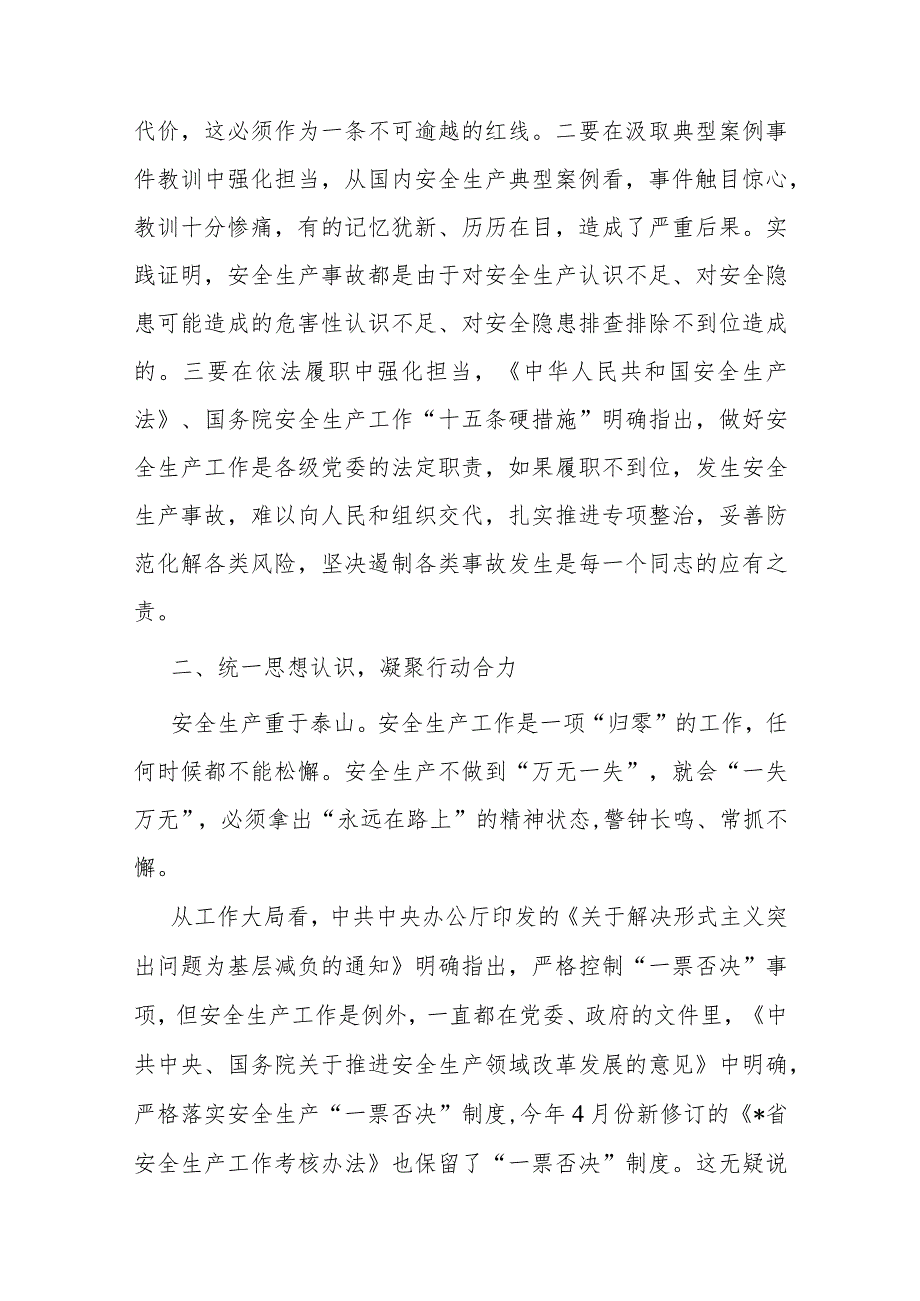 代价，这必须作为一条不可逾越的红线。二要在汲取典型案例事
件教训中强化担当，从国内安全生产典型案例看，事件触目惊心，
教训十分惨痛，有的记忆犹新、历历在目，造成了严重后果。实
践证明，安全生产事故都是由于对安全生产认识不足、对安全隐
患可能造成的危害性认识不足、对安全隐患排查排除不到位造成
的。三要在依法履职中强化担当，《中华人民共和国安全生产
法》、国务院安全生产工作“十五条硬措施”明确指出，做好安
全生产工作是各级党委的法定职责，如果履职不到位，发生安全
生产事故，难以向人民和组织交代，扎实推进专项整治，妥善防
范化解各类风险，坚决遏制各类事故发生是每一个同志的应有之
责。
二、统一思想认识，凝聚行动合力
安全生产重于泰山。安全生产工作是一项“归零”的工作，任
何时候都不能松懈。安全生产不做到“万无一失”，就会“一失
万无”，必须拿出“永远在路上”的精神状态,警钟长鸣、常抓不
懈。
从工作大局看，中共中央办公厅印发的《关于解决形式主义突
出问题为基层减负的通知》明确指出，严格控制“一票否决”事
项，但安全生产工作是例外，一直都在党委、政府的文件里，《中
共中央、国务院关于推进安全生产领域改革发展的意见》中明确，
严格落实安全生产“一票否决”制度,今年4月份新修订的《*省
安全生产工作考核办法》也保留了“一票否决”制度。这无疑说